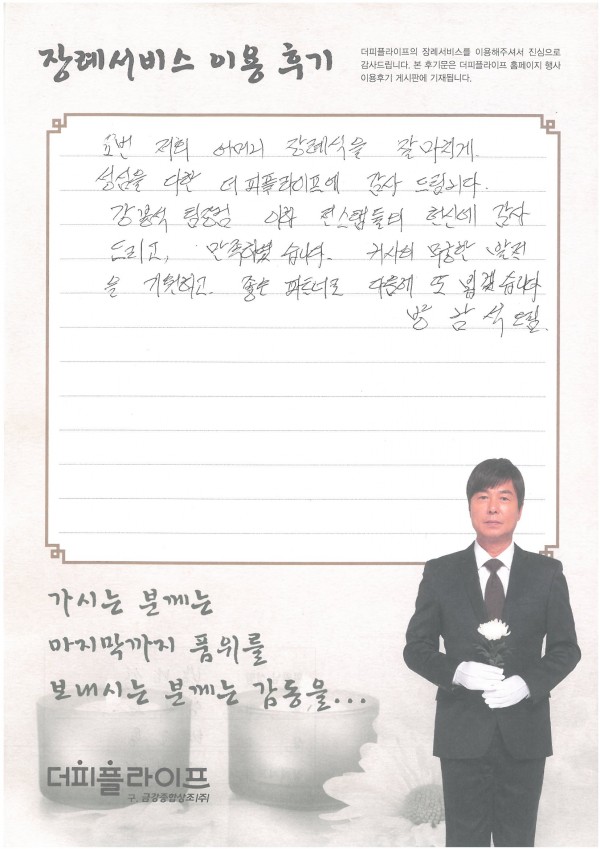 장례서비스 이용 후기
더피플라이프의 장례서비스를 이용해주셔서 진심으로
감사드립니다. 본 후기문은 더피플라이프 홈페이지 행사
이용후기 게시판에 기재됩니다.
요번 저희 어머니 장례식을 잘 마치게.
성심을 다한 더피플라이프에 감사 드립니다.
강봉석 팀장님 이하 전스탭들의 헌신에 감사
드리고, 만족하였습니다. 귀사의 무궁한 발전
을 기원하고. 좋은 파트너로 다음에 또 뵙겠습니다
방 삼 석 드림.
가시는 분께는
마지막까지 품위를
보내시는 분께는 감동을...
더피플라이프
구. 금강종합상조(주)